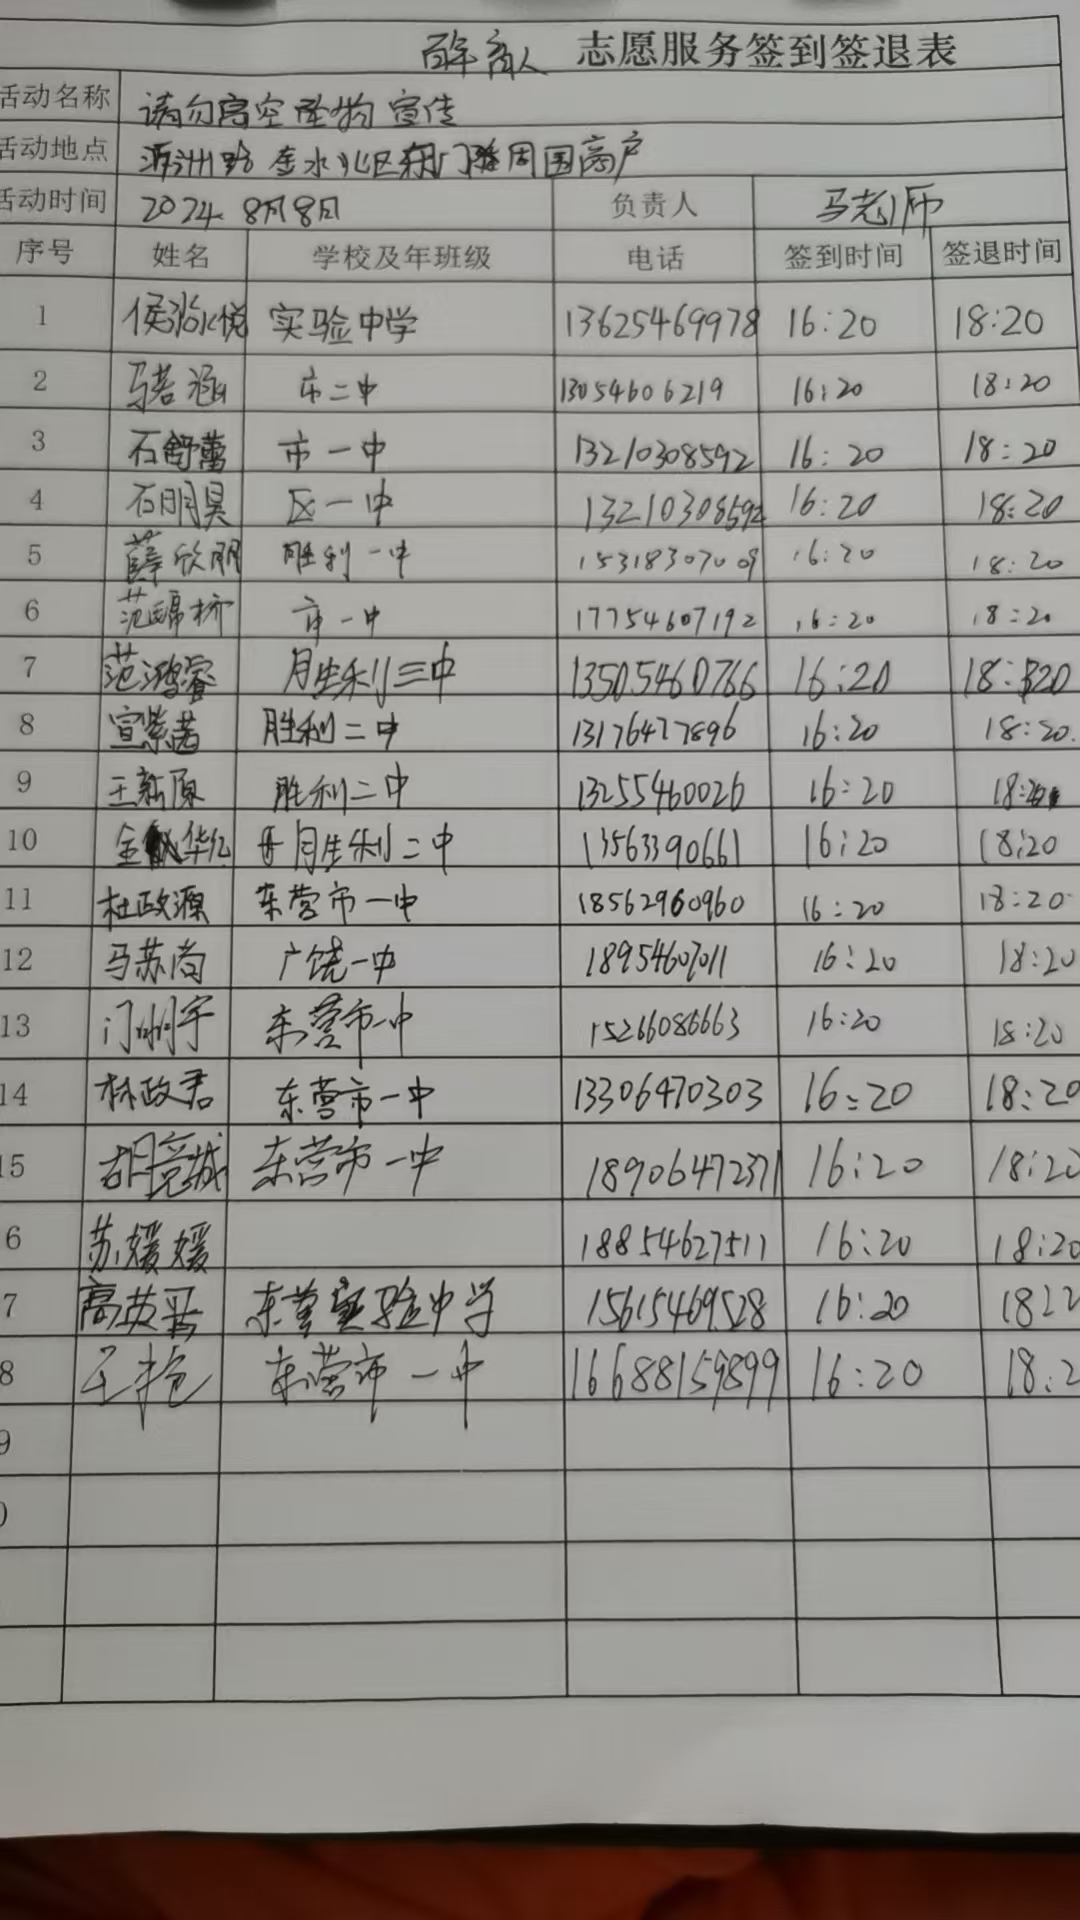 百年育人 志愿服务签到签退表
活动名称 请勿高空坠物宣传
活动地点 金水北区东门 周围商户
活动时间 2024. 8月8日 负责人 马老师
序号 姓名 学校及年班级 电话 签到时间 签退时间
1 侯 悦 实验中学 13625469978 16:20 18:20
2 马若涵 市二中 13054606219 16:20 18:20
3 石舒蕾 市一中 13210308592 16:20 18:20
4 石明昊 区一中 13210308592 16:20 18:20
5 薛欣朋 胜利一中 15318307009 16:20 18:20
6 范 桥 市一中 17754607192 16:20 18:20
7 范鸿睿 胜利三中 13505460766 16:20 18:20
8 宣紫茜 胜利二中 13176477896 16:20 18:20.
9 王新原 胜利二中 13255460026 16:20 18:20
10 金 华 胜利二中 13563390661 16:20 18:20
11 杜政源 东营市一中 18562960960 16:20 18:20
12 马苏尚 广饶一中 18954607011 16:20 18:20
13 门 宇 东营市一中 15266086663 16:20 18:20
14 林政君 东营市一中 13306470303 16:20 18:20
15 胡竞城 东营市一中 18906472371 16:20 18:20
6 苏媛媛 18854627511 16:20 18:20
7 高英 东营实验中学 15615469528 16:20 18:2
8 王 东营市一中 16688159899 16:20 18:2
9
0